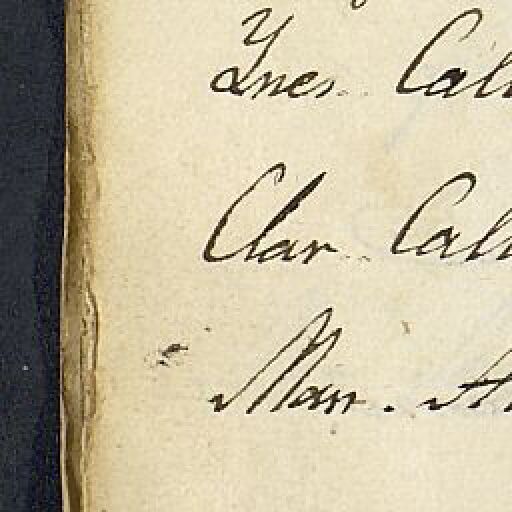 Ynes Call
Clar Call
Man. A